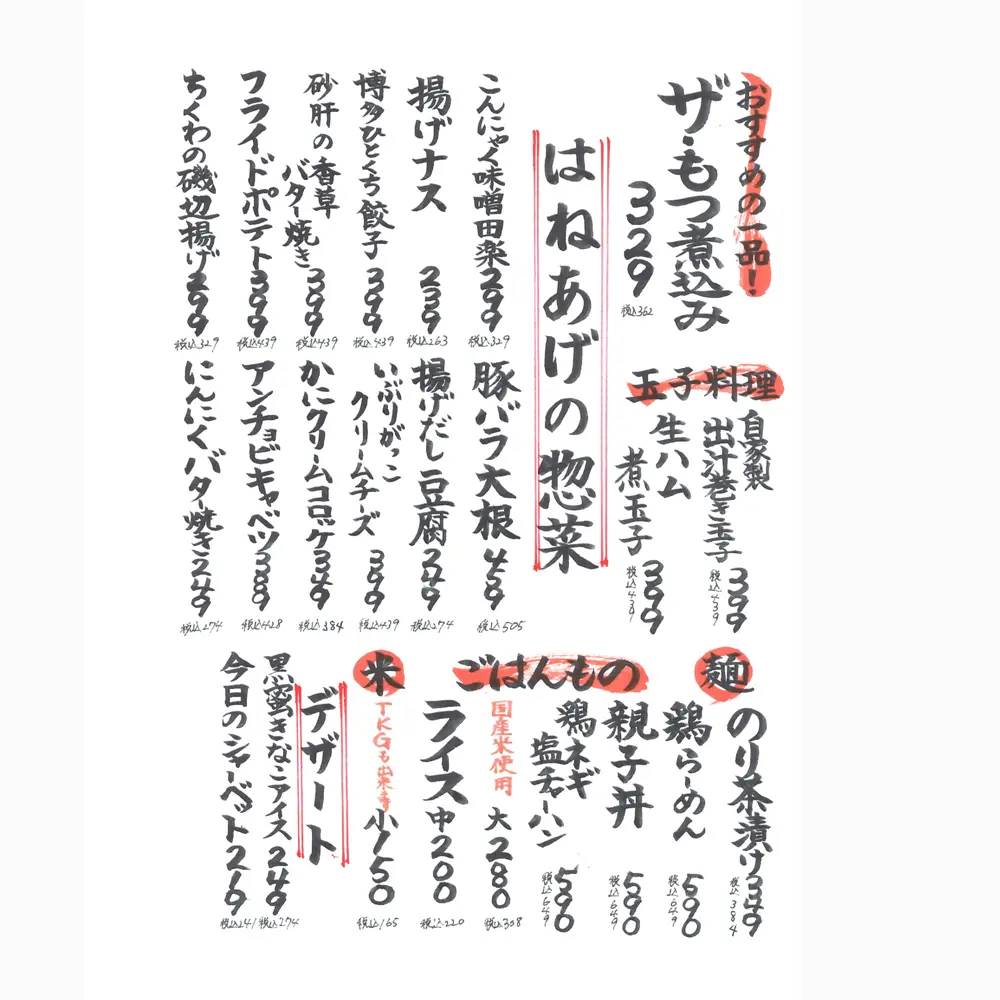 おすすめの一品!
ザ・もつ煮込み
329
税込362
玉子料理
自家製
出汁巻き玉子
399
税込439
生ハム
煮玉子
399
税込439
はねあげの惣菜
こんにゃく味噌田楽299
税込329
揚げナス 239
税込263
博多ひとくち餃子 399
税込439
砂肝の香草
バター焼き399
税込439
フライドポテト399
税込439
ちくわの磯辺揚げ299
税込329
豚バラ大根459
税込505
揚げだし豆腐249
税込274
いぶりがっこ
クリームチーズ 399
税込439
かにクリームコロッケ349
税込384
アンチョビキャベツ388
税込428
にんにくバター焼き249
税込274
麺
のり茶漬け349
税込384
鶏らーめん 590
税込649
ごはんもの
親子丼 590
税込649
鶏ネギ
塩チャーハン 590
税込649
国産米使用
ライス
大280
税込308
中200
税込220
米
TKGも出来ます
小150
税込165
デザート
黒蜜きなこアイス249
税込274
今日のシャーベット219
税込241